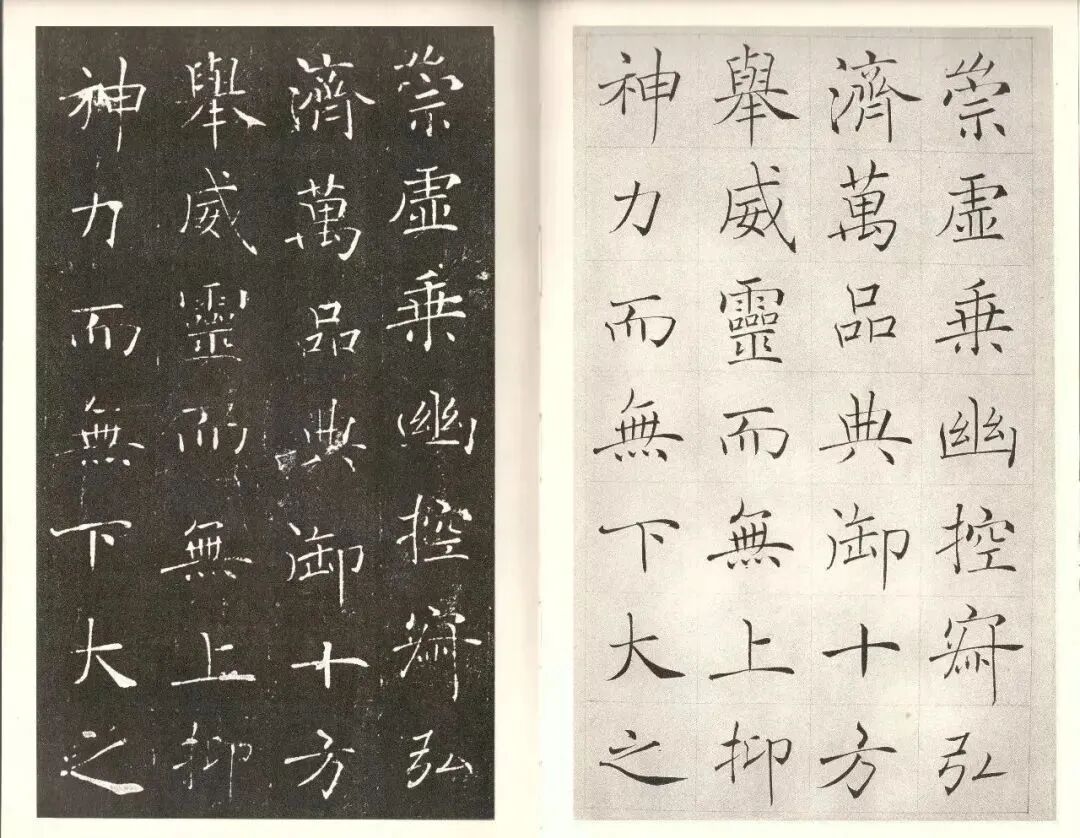 崇虚乗幽控寂弘
濟萬品典御十方
舉威靈而無上抑
神力而無下大之
崇虚乗幽控寂弘
濟萬品典御十方
舉威靈而無上抑
神力而無下大之